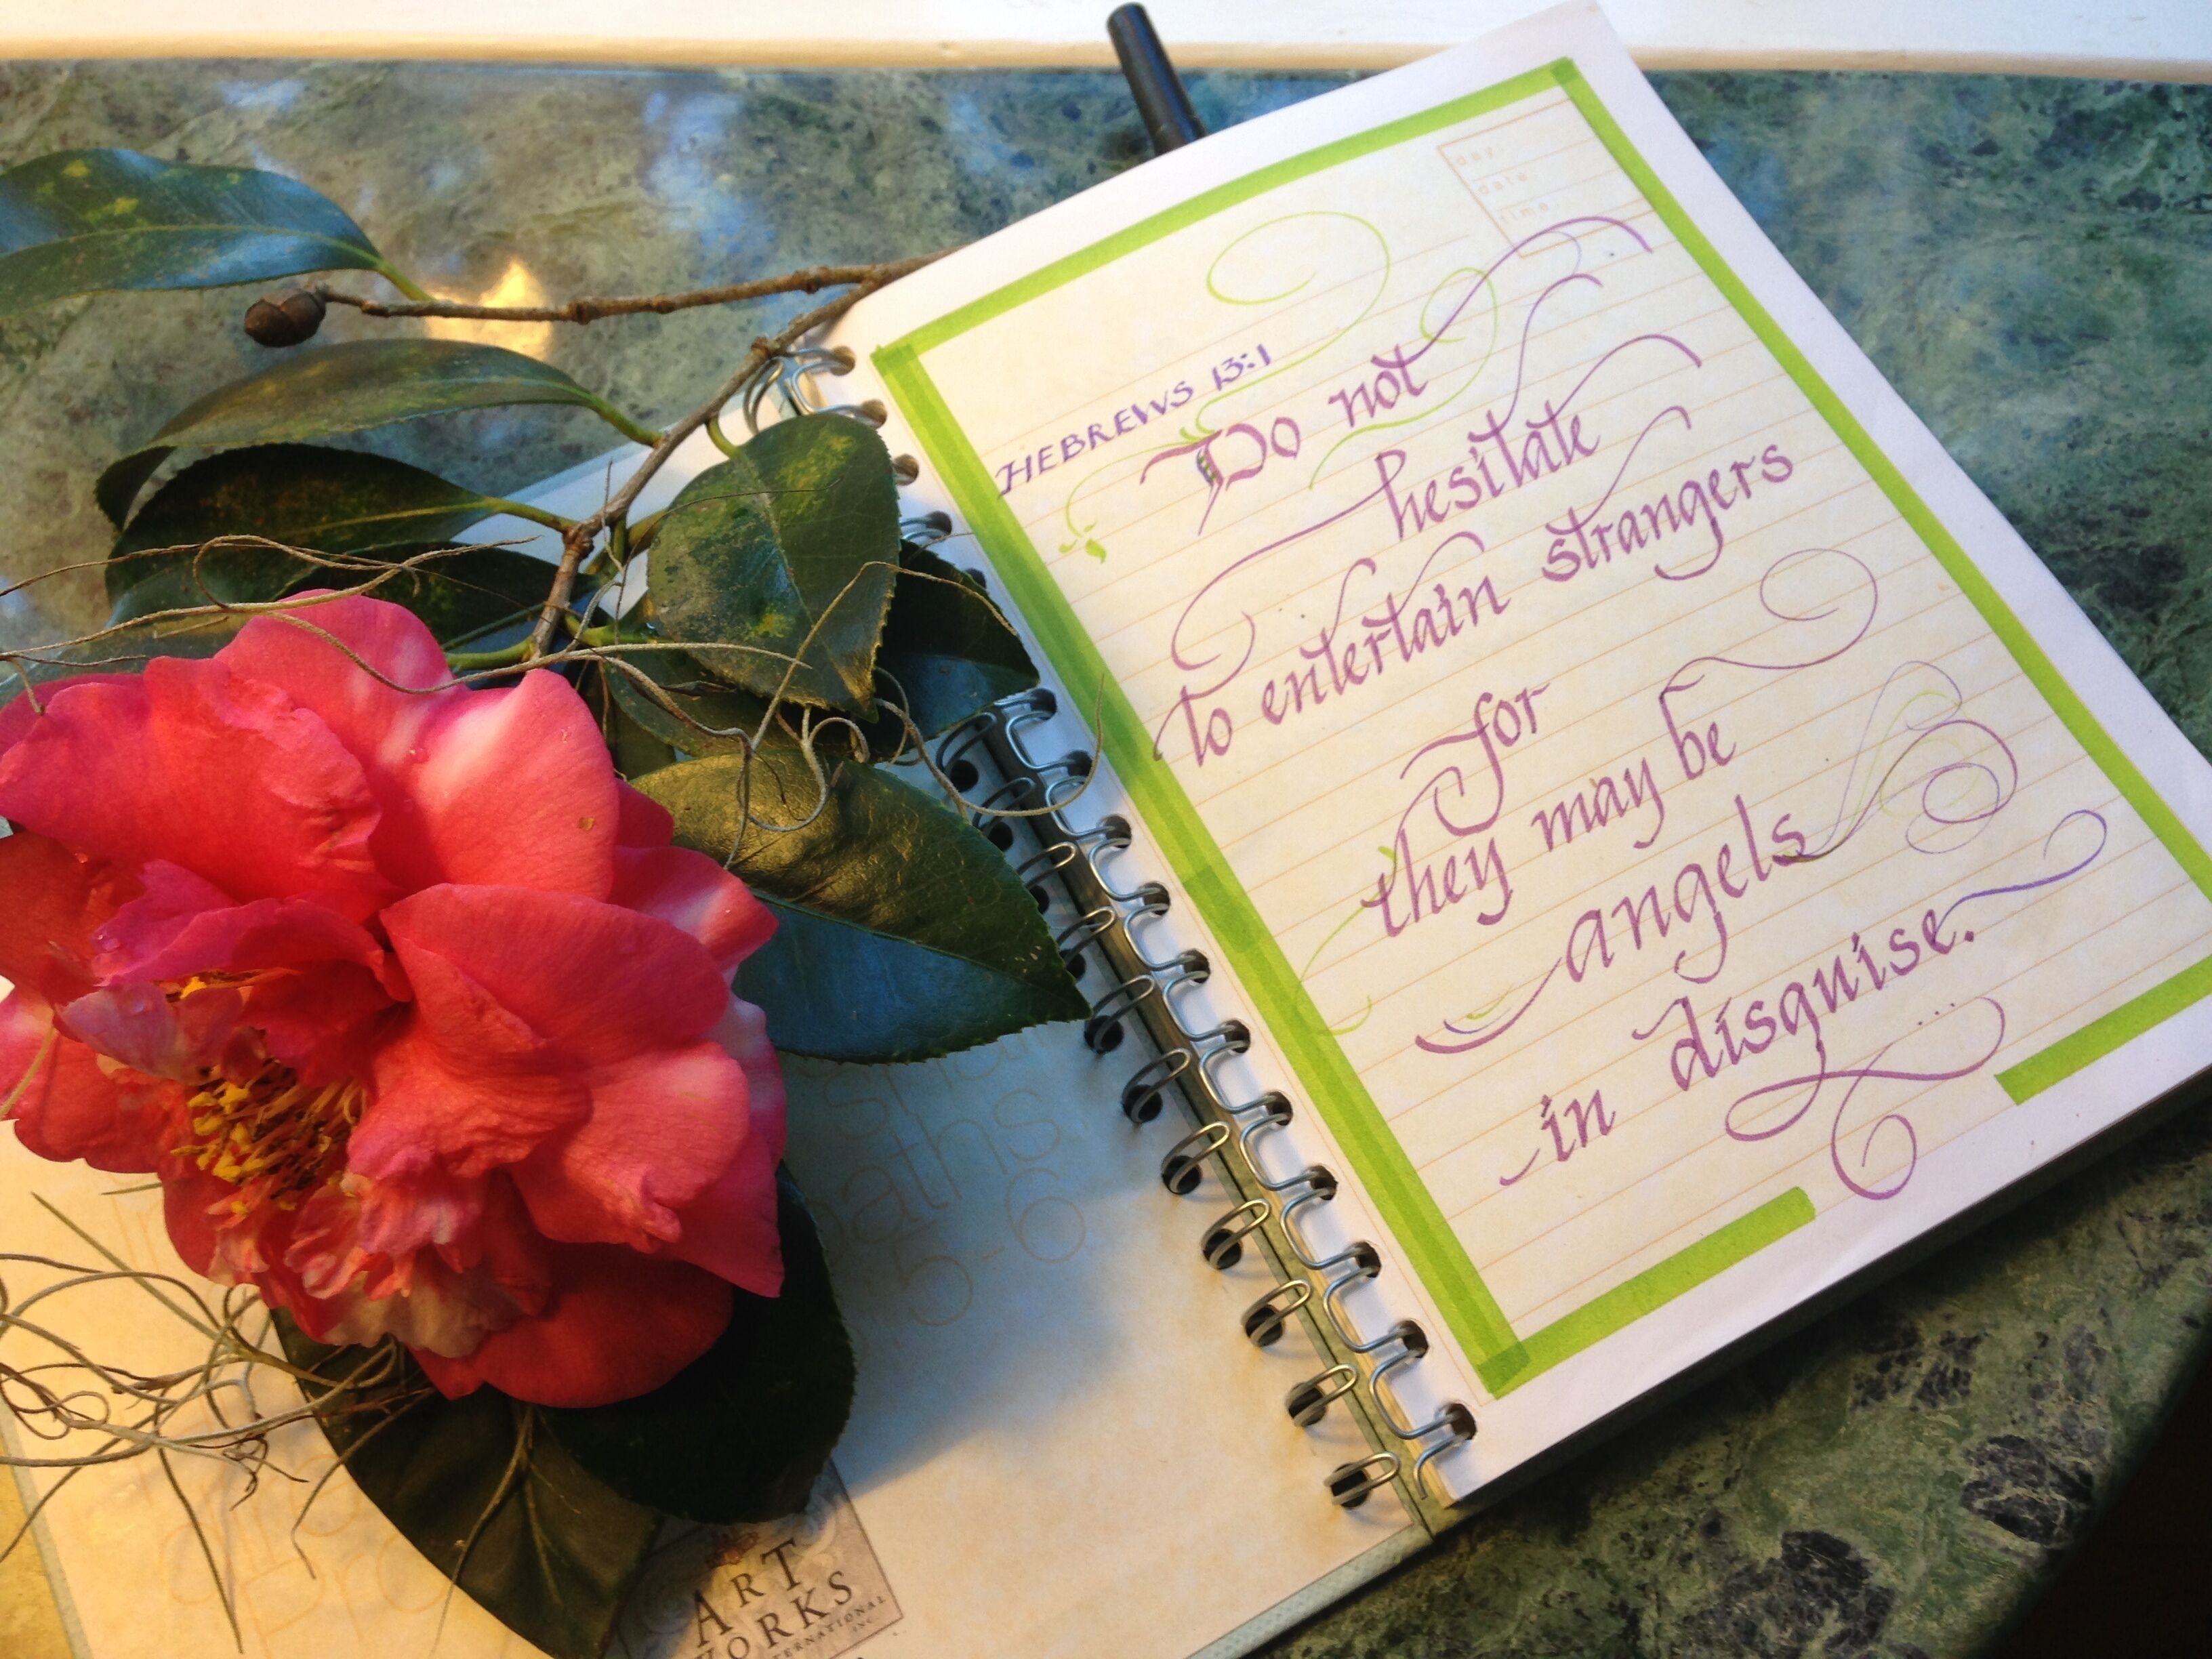 day:
date:
time:
HEBREWS 13:1
Do not
hesitate
to entertain strangers
for
they may be
angels
in disguise.
paths
5-6
ART
WORKS
INTERNATIONAL
INC